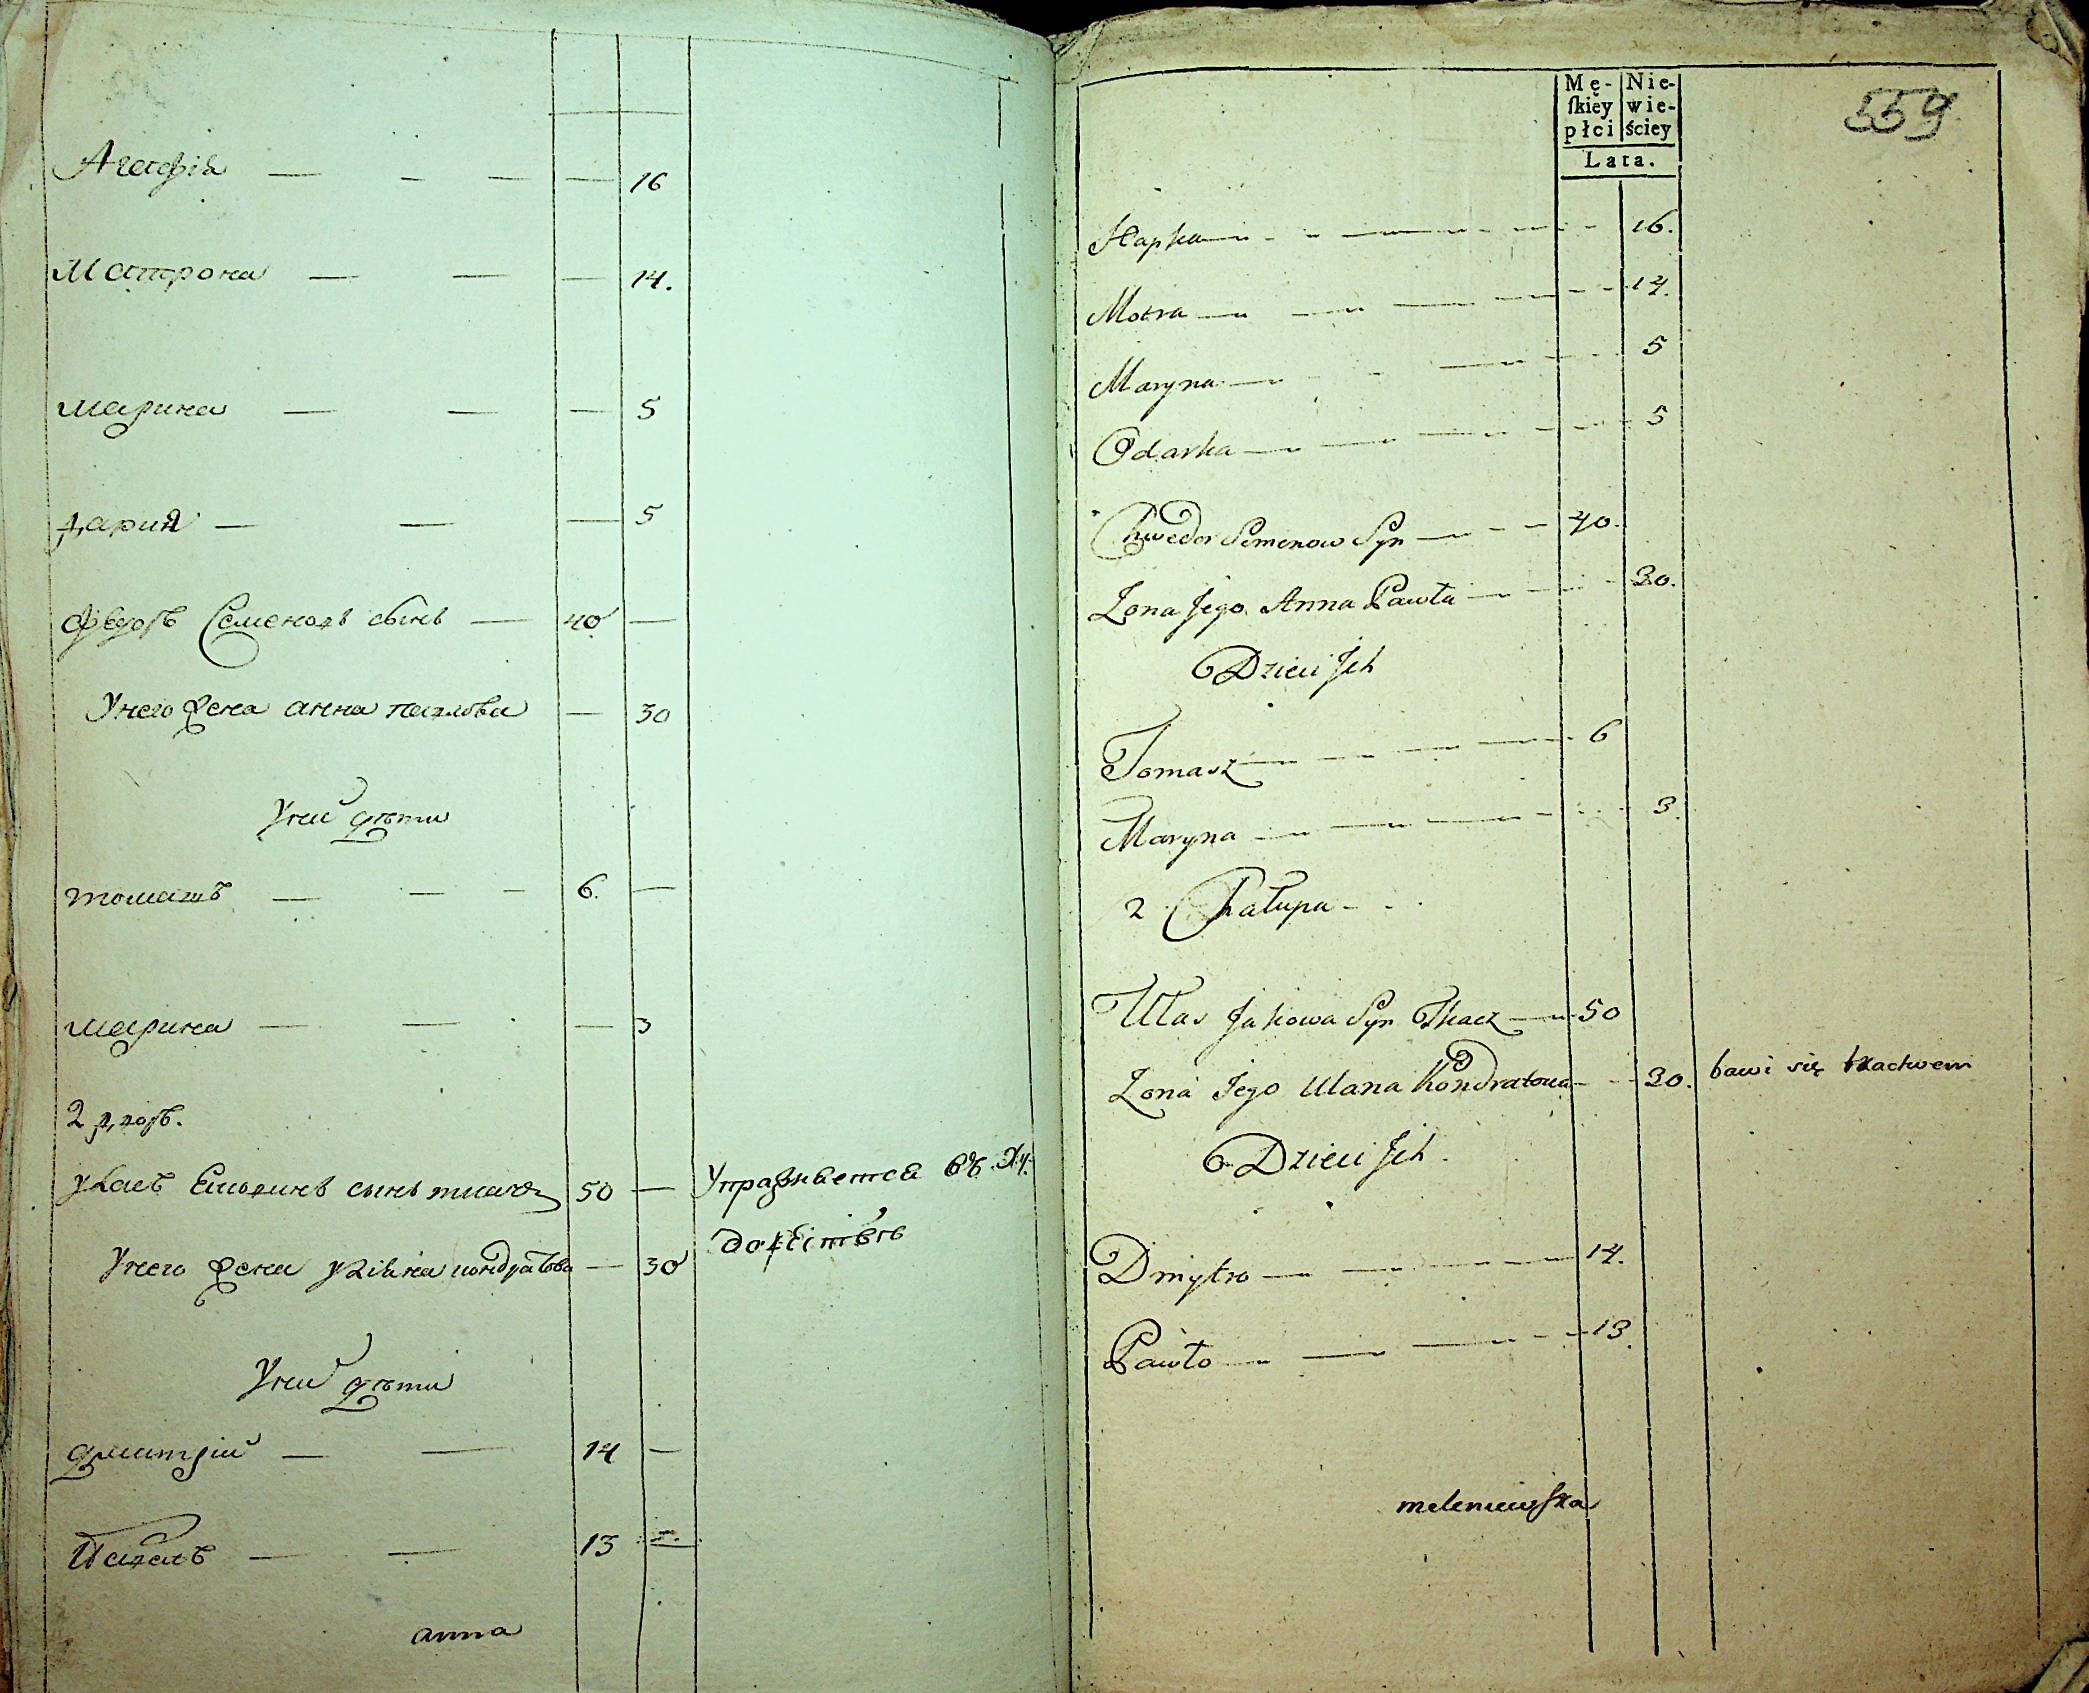 Агафія — — — — 16
Матрона — — — 14.
марина — — — 5
дария — — — 5
Федоръ Семеновъ сынъ — 40 —
У него жена анна павлова — 30
У ни дѣти
томашъ — — — 6. —
марина — — — 3
2 дворъ.
уласъ сынъ ткачъ 50 — Упражняется въ
У него жена улiяна кондратова — 30
У ни дѣти
дмитрій — — 14 —
Павелъ — — 13 —
anna
559
Mę- Nie-
skiey wie-
płci ściey
Lata.
Hapka — — — 16.
Motra — — — 14.
Maryna — — — 5
Odarka — — — 5
Chwedor Semenow Syn — — — 40.
Żona Jego Anna Pawła — — — 30.
Dzieci Jch
Tomasz — — — 6
Maryna — — — 3.
2 Chałupa - - .
Ułas Jakowa Syn Tkacz — 50
Żona Jego Ulana Kondratowa — — 30. bawi się tkactwem
Dzieci Jch
Dmytro — — — 14.
Pawło — — — 13.
meleniewska